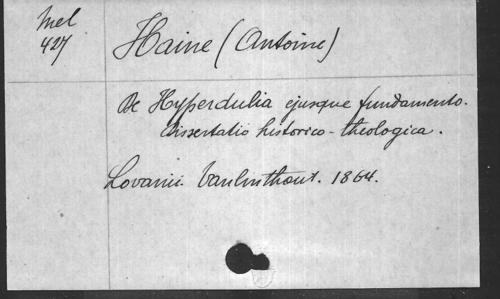 Mel
427
Haine (Antoine)
De Hyperdulia ejusque fundamento.
dissertatio historico-theologica.
Lovanii. Vanlinthout. 1864.